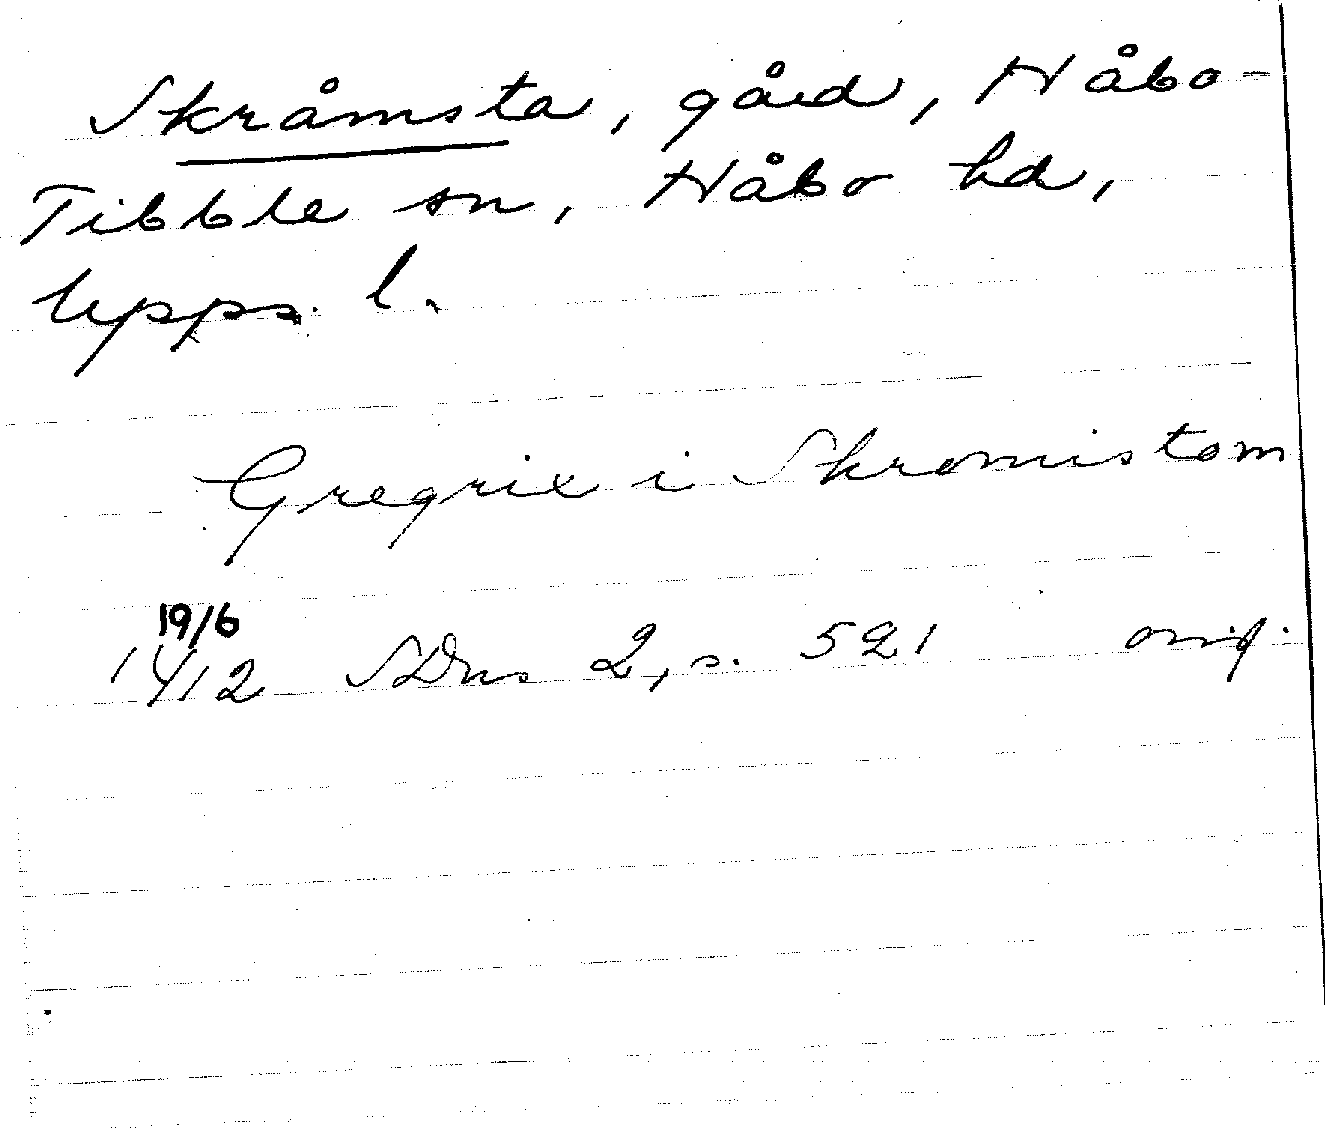 Skråmsta, gård, Håbo-
Tibble sn, Håbo hd,
Upps. l.
Gregrie i Skromistom
19/6
1412 SDns 2, s. 521 orig.